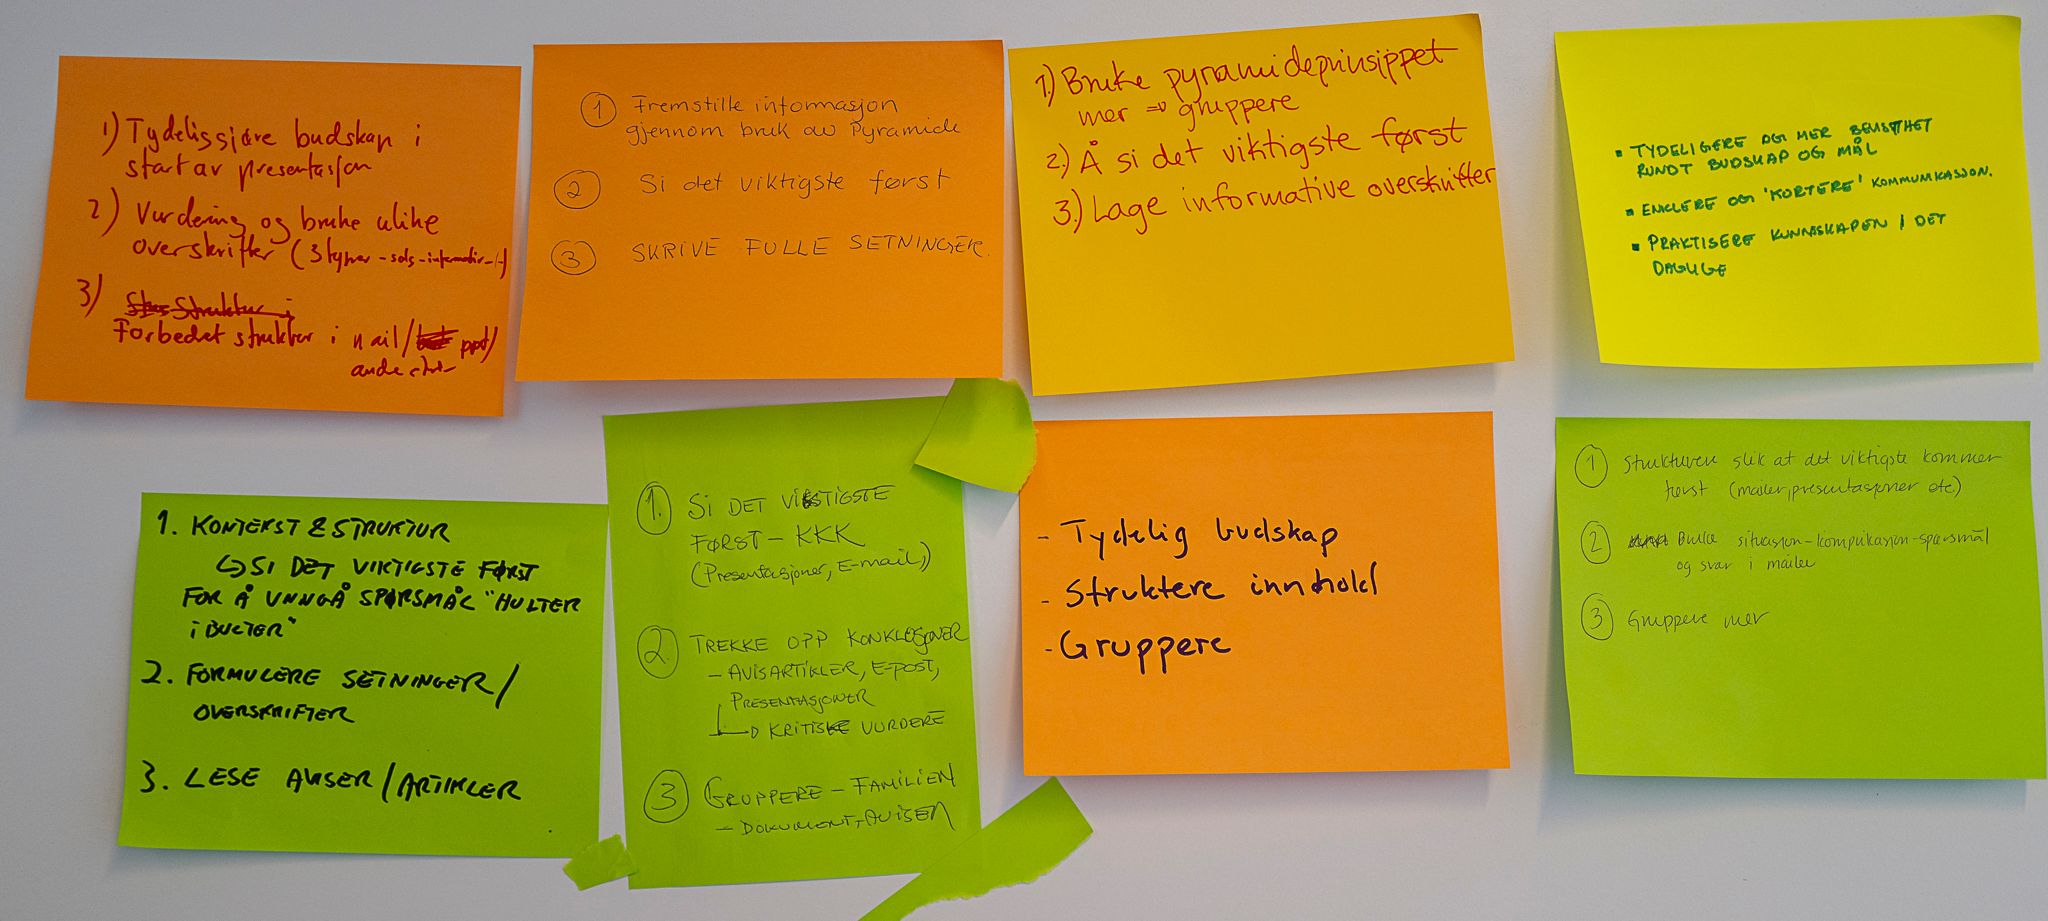 1) Tydeligjøre budskap i
start av presentasjon
2) Vurdering og bruke ulike
overskrifter (3 typer - - informativ -
3)
Forbedet struktur i mail/ ppt/
andre
① Fremstille informasjon
gjennom bruk av Pyramide
② Si det viktigste først
③ SKRIVE FULLE SETNINGER.
1.) Bruke pyramideprinsippet
mer => gruppere
2.) Å si det viktigste først
3.) Lage informative overskrifter
▪ TYDELIGERE OG MER BEVISSTHET
RUNDT BUDSKAP OG MÅL
▪ ENKLERE OG "KORTERE" KOMMUNIKASJON.
▪ PRAKTISERE KUNNSKAPEN I DET
DAGLIGE
1. KONTEKST & STRUKTUR
↳ SI DET VIKTIGSTE FØRST
FOR Å UNNGÅ SPØRSMÅL "HULTER
I BULTER"
2. FORMULERE SETNINGER/
OVERSKRIFTER
3. LESE AVISER/ARTIKLER
① SI DET VIKTIGSTE
FØRST – KKK
(PRESENTASJONER, E-MAIL,)
② TREKKE OPP KONKLUSJONER
– AVISARTIKLER, E-POST,
PRESENTASJONER
↳ KRITISK VURDERE
③ GRUPPERE – FAMILIEN
– DOKUMENT, AVISEN
- Tydelig budskap
- Struktere innhold
- Gruppere
① Strukturere slik at det viktigste kommer
først (mailer, presentasjoner etc)
② Bruke situasjon-komplikasjon-spørsmål
og svar i mailer
③ Gruppere mer